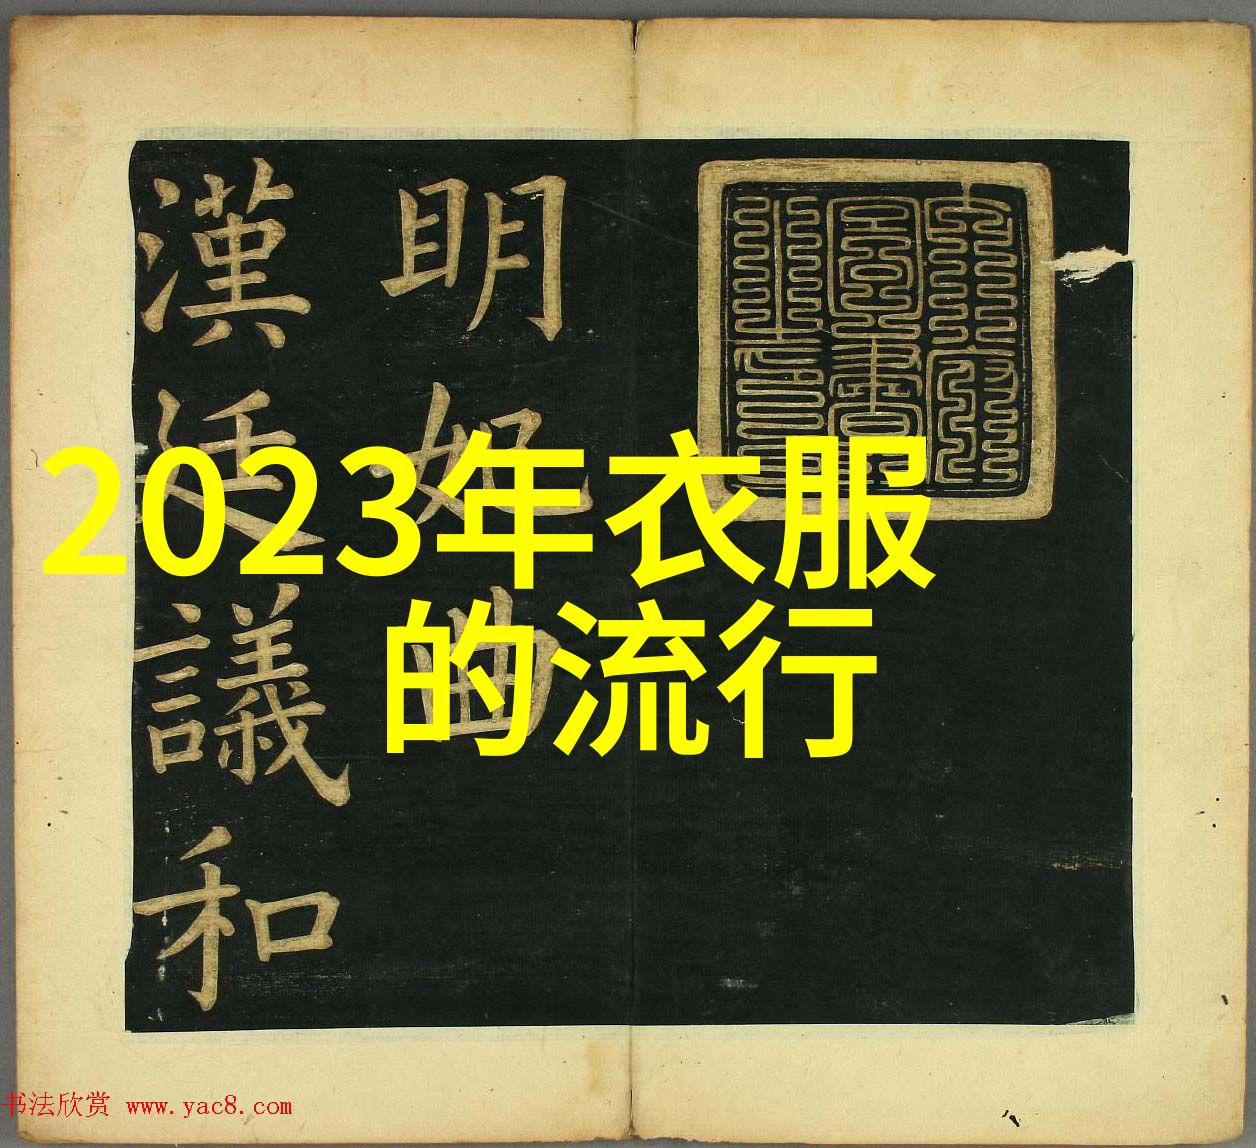 2023年衣服
的流行
眀妃曲
漢廷議和
书法欣赏 www.yac8.com